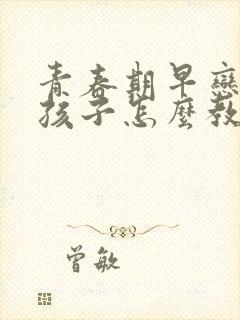 青春期早戀
孩子怎麼教
曾敏